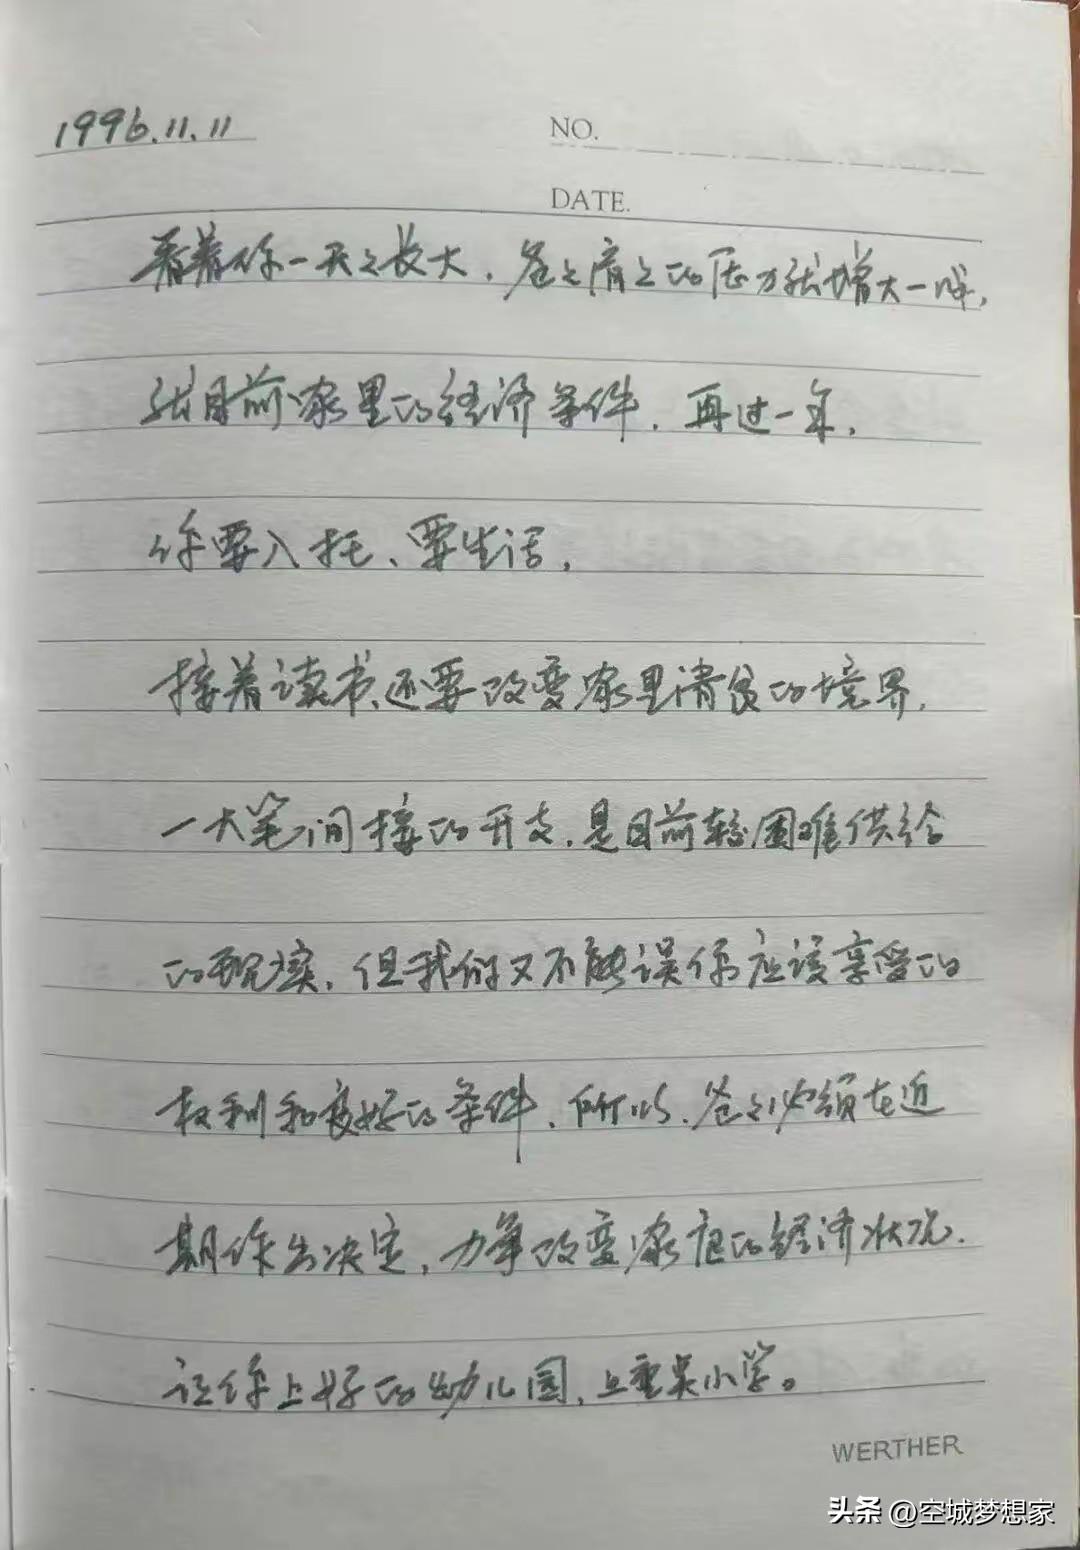 1996.11.11
NO.
DATE.
看着你一天々长大，爸々肩上的压力就增大一成，
就目前家里的经济条件，再过一年，
你要入托、要生活，
接着读书、还要改变家里清贫的境界，
一大笔间接的开支，是目前较困难供给
的现实，但我们又不能误你应该享受的
权利和良好的条件，所以，爸々必须在近
期作出决定，力争改变家庭的经济状况，
让你上好的幼儿园，上重点小学。
WERTHER
头条 @空城梦想家